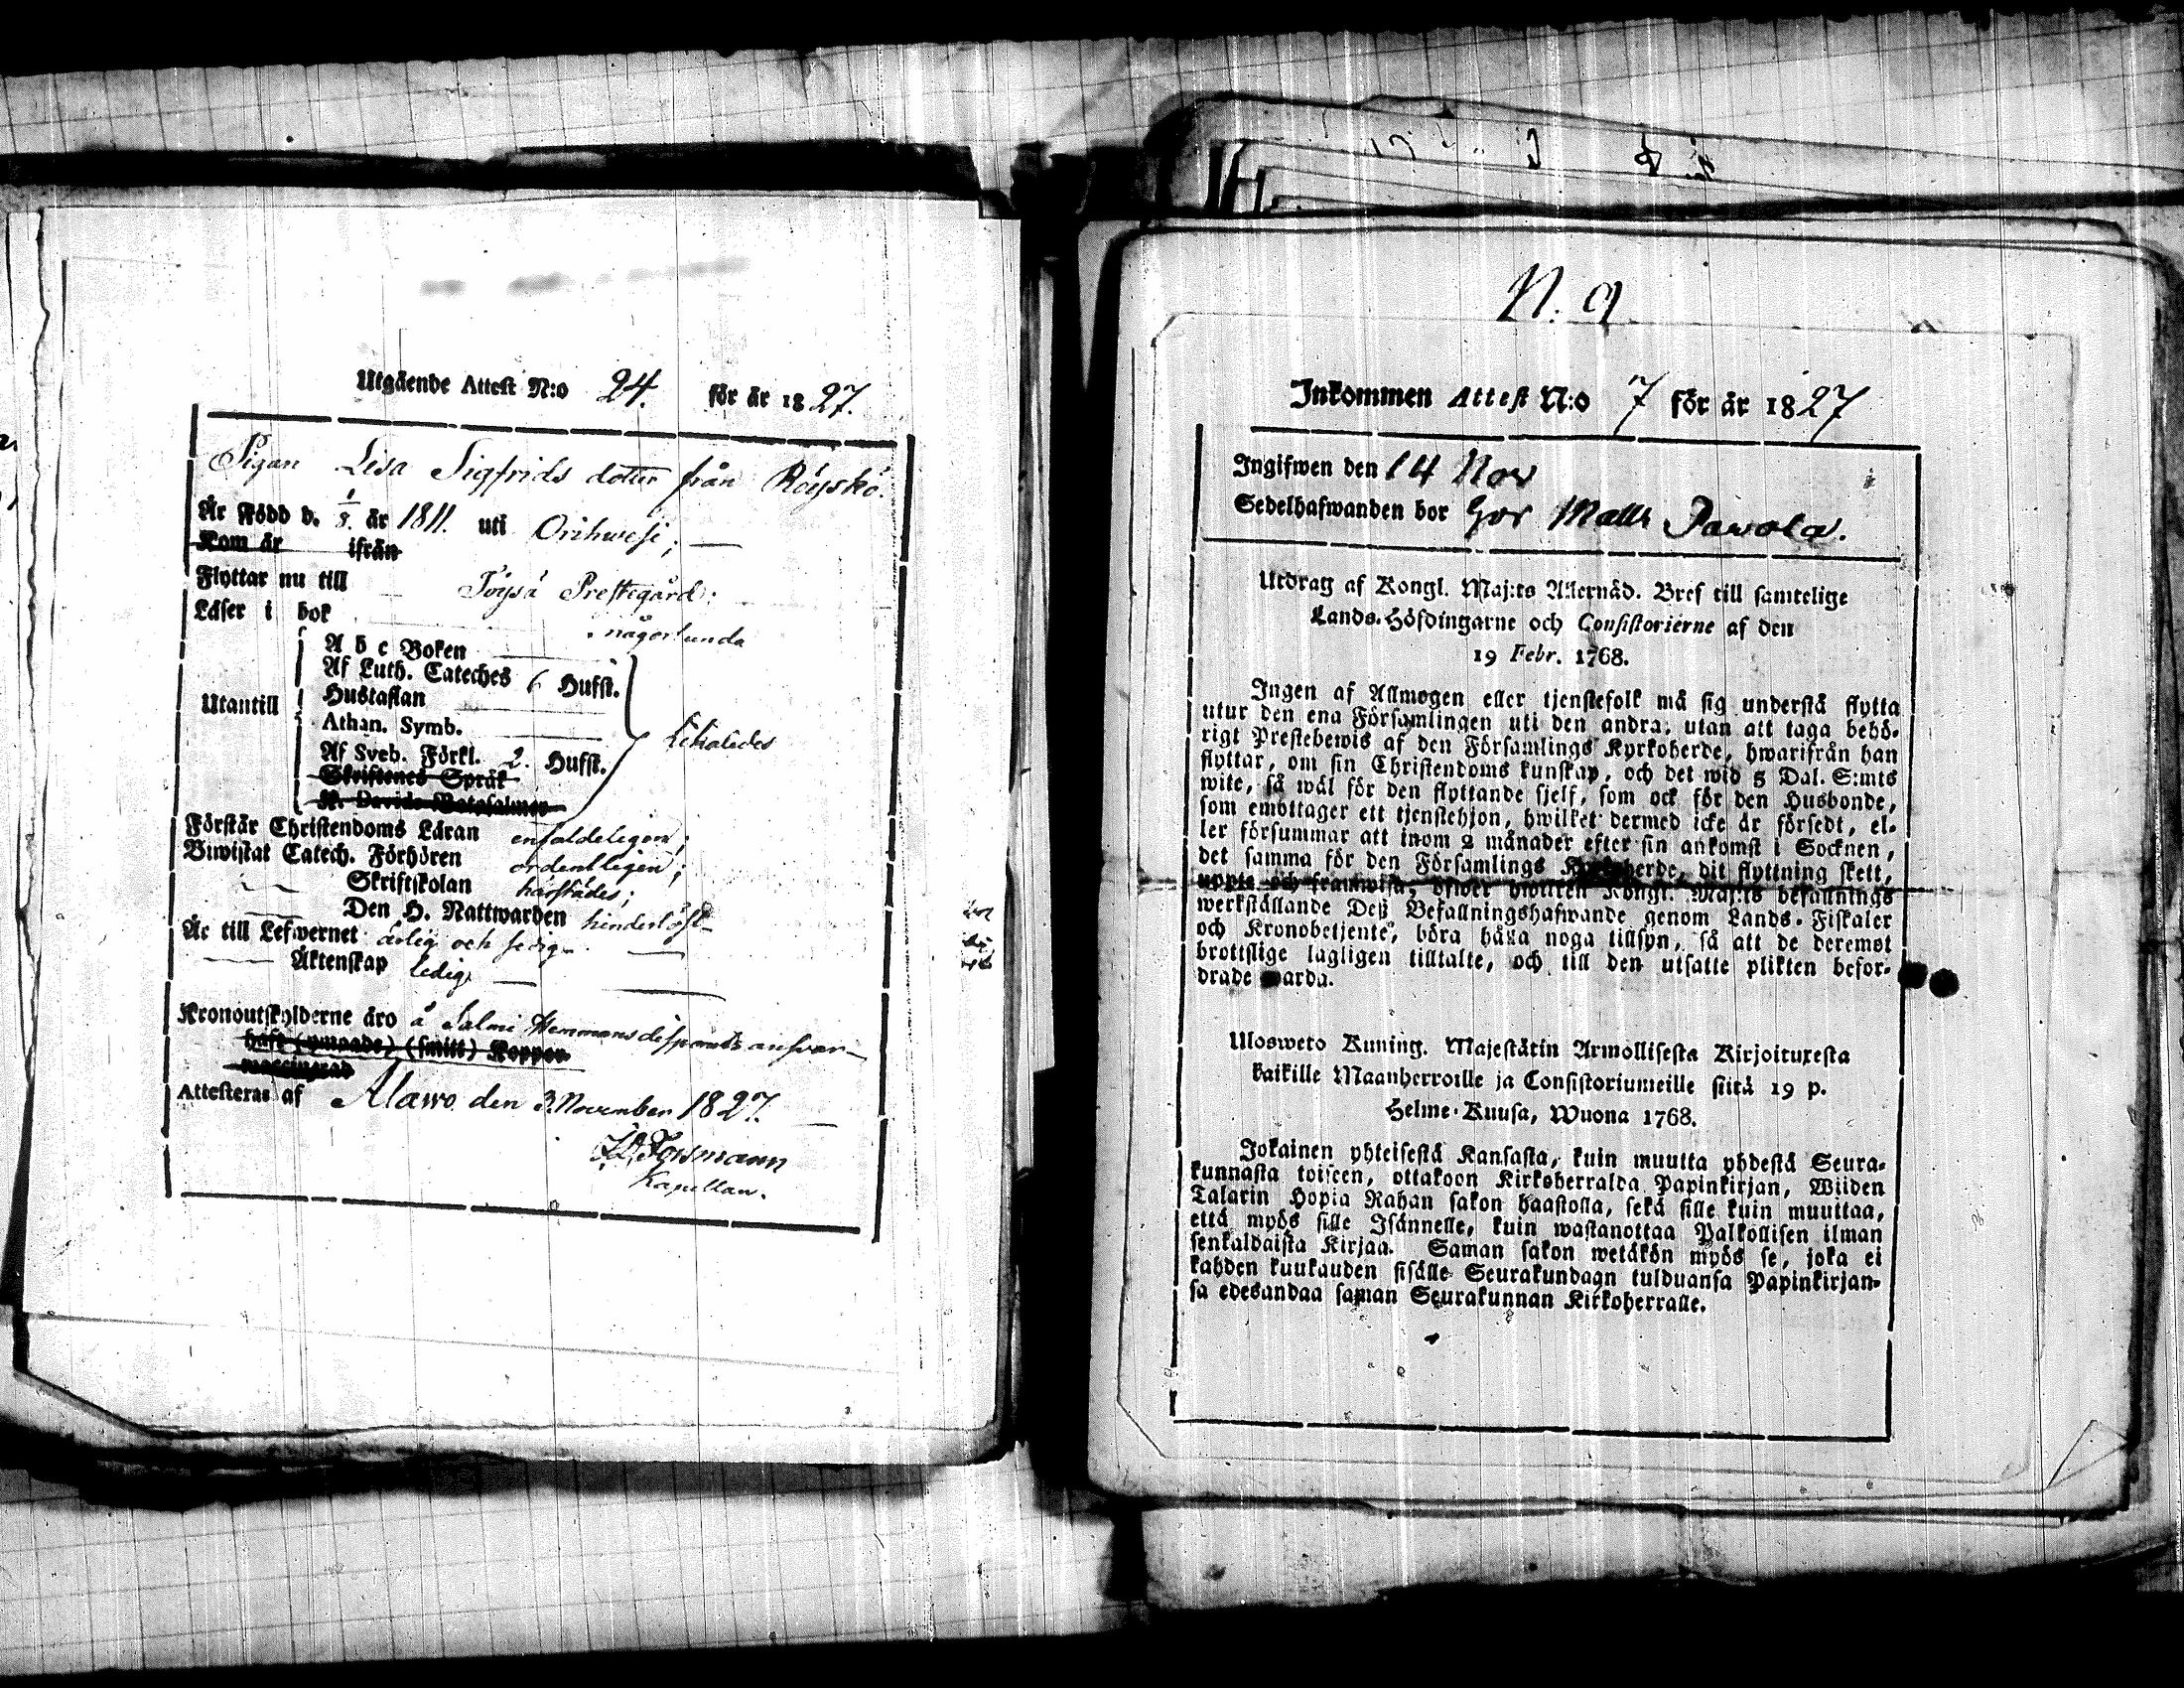 Utgående Attest N:o 24. för år 1827.
Pigan Lisa Sigfrids dotter från Röyskö.
Är Född d. 1/8. år 1811. uti Orihwesi;
Kom år ifrån
Flyttar nu till Töysä Prestegård;
Läser i bok någorlunda
A b c Boken
Af Luth. Cateches 6 Hufst.
Hustaflan
Utantill
Athan. Symb.
likaledes
Af Sveb. Förkl. 2. Hufst.
Skriftenes Språk
K. Davids Botpsalmer
Förstår Christendoms Läran enfaldeligen;
Biwistat Catech. Förhören ordentligen;
Skriftskolan härstädes;
Den H. Nattwarden hinderlöst
Är till Lefwernet ärlig och sedig
Äktenskap ledig
Kronoutskylderne äro å Salmi Hemmans ansvar
haft (ymnade) (smitt) Koppor
Attesteras af Alawo den 3. November 1827.
Forsmann
Kapellan.
N. 9
Inkommen Attest N:o 7 för år 1827
Ingifwen den 14 Nov
Sedelhafwanden bor Gor Matts Pavola.
Utdrag af Kongl. Maj:ts Allernåd. Bref till samtelige
Lands-Höfdingarne och Consistorierne af den
19 Febr. 1768.
Ingen af Allmogen eller tjenstefolk må sig understå flytta
utur den ena Församlingen uti den andra, utan att taga behö-
rigt Prestebewis af den Församlings Kyrkoherde, hwarifrån han
flyttar, om sin Christendoms kunskap, och det wid 5 Dal. S:mts
wite, så wäl för den flyttande sjelf, som ock för den Husbonde,
som emottager ett tjenstehjon, hwilket dermed icke är försedt, el-
ler försummar att inom 2 månader efter sin ankomst i Socknen,
det samma för den Församlings Kyrkoherde, dit flyttning skett,
uppte och framwisa, öfwer hwilken Kongl. Maj:ts befallnings
werkställande Deß Befallningshafwande genom Lands-Fiskaler
och Kronobetjente, böra hålla noga tillsyn, så att de deremot
brottslige lagligen tilltalte, och till den utsatte plikten befor-
drade warda.
Ulosweto Kuning. Majestätin Armollisesta Kirjoituxesta
kaikille Maanherroille ja Consistoriumeille siitä 19 p.
Helme-Kuusa, Wuona 1768.
Jokainen yhteisestä Kansasta, kuin muutta yhdestä Seura-
kunnasta toiseen, ottakoon Kirkoherralda Papinkirjan, Wiiden
Talarin Hopia Rahan sakon haastolla, sekä sille kuin muuttaa,
että myös sille Isännelle, kuin wastanottaa Palkollisen ilman
senkaldaista Kirjaa. Saman sakon wetäkön myös se, joka ei
kahden kuukauden sisälle Seurakundaan tulduansa Papinkirjan-
sa edesandaa saman Seurakunnan Kirkoherralle.